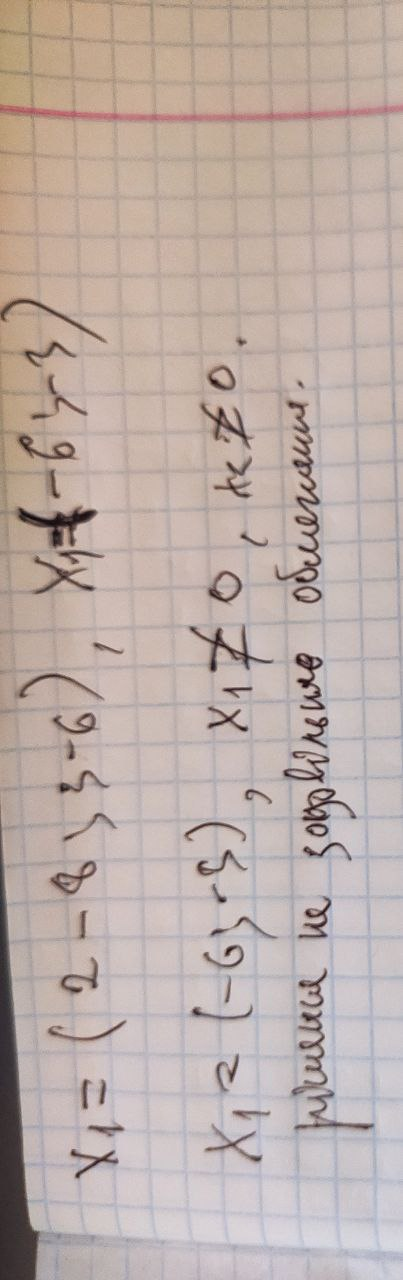 X₁ = (2 - 8; 3 - 6), X₁ = (-6; -3)
X₁ = (-6; -3), X₁ ≠ 0, X₂ ≠ 0.
рішення не задовільняє обмеження.